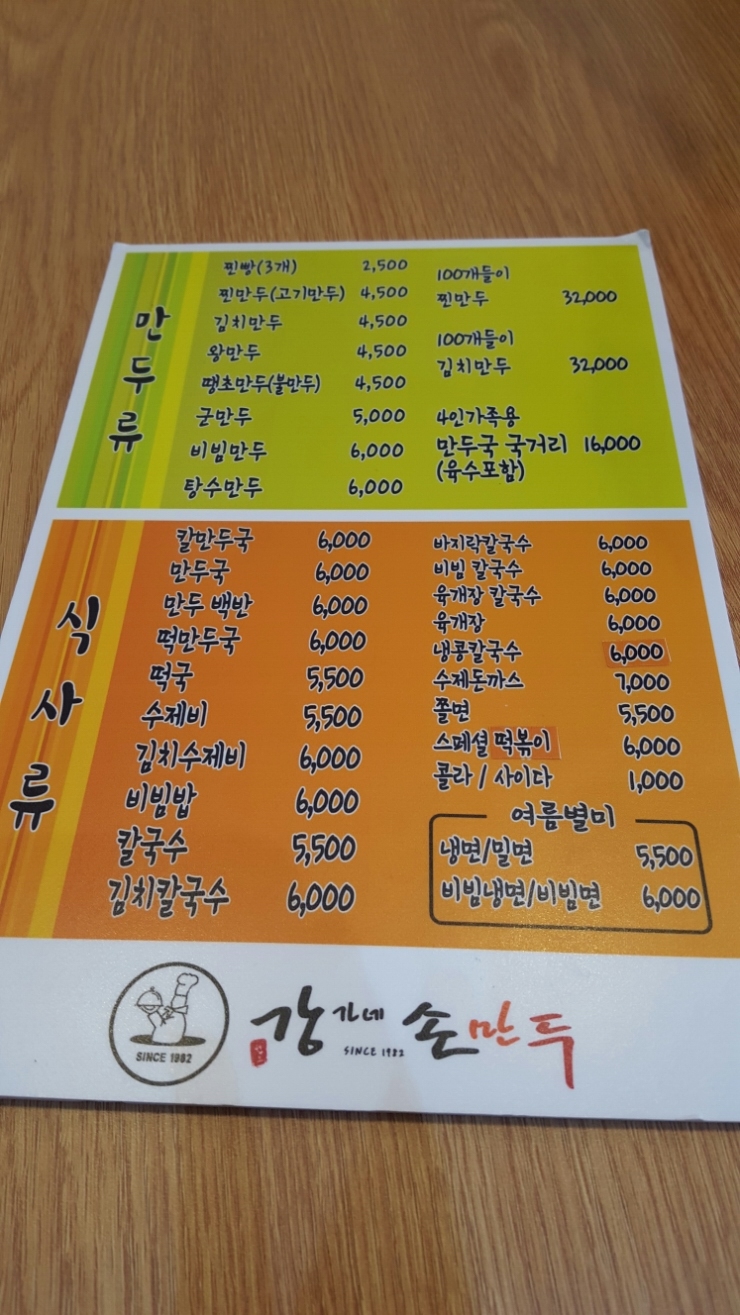 만두류
찐빵(3개) 2,500
찐만두(고기만두) 4,500
김치만두 4,500
왕만두 4,500
땡초만두(불만두) 4,500
군만두 5,000
비빔만두 6,000
탕수만두 6,000
100개들이
찐만두 32,000
100개들이
김치만두 32,000
4인가족용
만두국 국거리 16,000
(육수포함)
식사류
칼만두국 6,000
만두국 6,000
만두 백반 6,000
떡만두국 6,000
떡국 5,500
수제비 5,500
김치수제비 6,000
비빔밥 6,000
칼국수 5,500
김치칼국수 6,000
바지락칼국수 6,000
비빔 칼국수 6,000
육개장 칼국수 6,000
육개장 6,000
냉콩칼국수 6,000
수제돈까스 7,000
쫄면 5,500
스페셜 떡볶이 6,000
콜라 / 사이다 1,000
여름별미
냉면/밀면 5,500
비빔냉면/비빔면 6,000
SINCE 1982
강가네 손만두
SINCE 1982